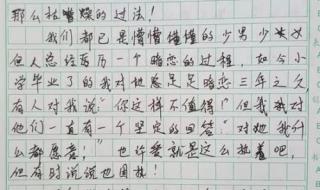 那么枯燥的过法!
我们都已是懵懵懂懂的少男少女
但人总经历历一个暗恋的过程,如今小
学毕业了的我对他总是足暗恋三年之久
有人对我说"你这样不值得!"但我我对
他们一直有一个坚定的回答"对她我什
么都愿意!"也许爱就是这么执着吧,
但有时说说也困执!